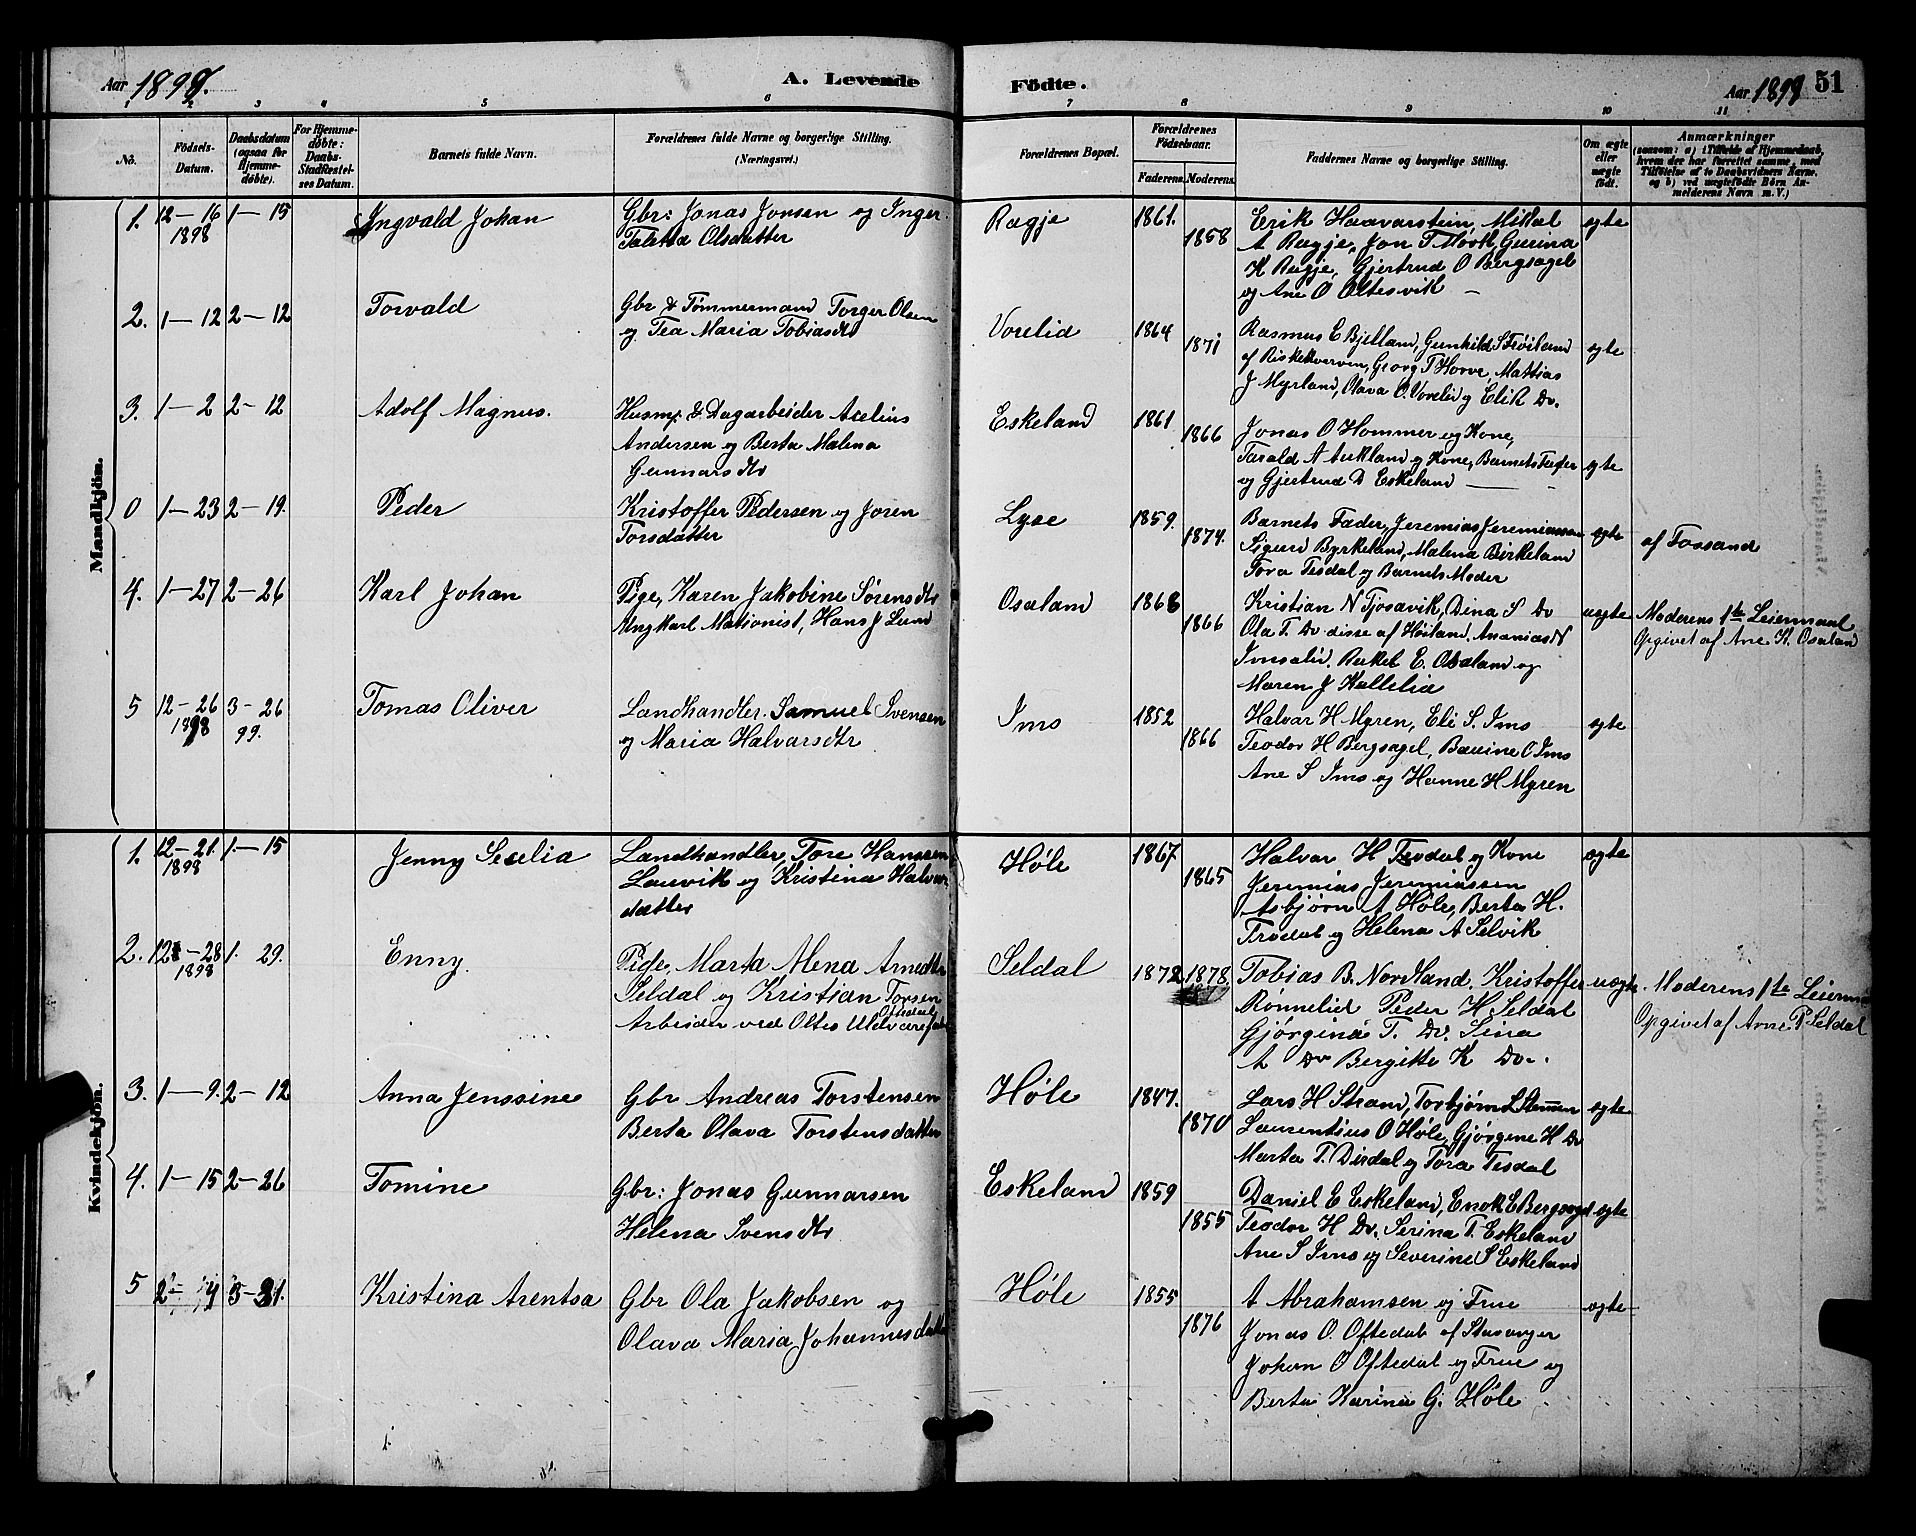 Aar 1899.
A. Levende
Födte.
Aar 1899
51
1 2 3 4 5 6 7 8 9 10 11
No.
Födsels-
Datum.
Daabsdatum
(ogsaa for
Hjemme-
døbte).
For Hjemme-
døbte:
Daabs-
Stadfæstel-
ses Datum.
Barnets fulde Navn.
Forældrenes fulde Navne og borgerlige Stilling.
(Næringsvei.)
Forældrenes Bopæl.
Forældrenes
Födselsaar.
Faderens. Moderens.
Faddernes Navne og borgerlige Stilling.
Om ægte
eller
uægte
født.
Anmærkninger
(saasom: a) i Tilfælde af Hjemmedaab,
hvem der har forrettet samme, med
Tilföielse af to Daabsvidners Navne,
og b) ved uægtefödte Börn An-
melderens Navn m. V.)
Mandkjön.
1. 12-16 1-15 Ingvald Johan Gbr: Jonas Jonsen og Inger Rægje 1861. Erik Haavarstein, Mikal egte
1898 Taletta Olsdatter 1858 A Rægje, Jon T Mork, Gurina
K Rægje, Gjertrud O Bergsagel
og Ane O Oltesvik -
2. 1-12 2-12 Torvald Gbr & Tømmermand Torger Olsen Vorelid 1864 Rasmus E Bjelland, Gunhild S Frøiland
og Tea Maria Tobiasdtr 1871 af Riskekverven, Georg T Horve Mattias egte
J Myrland, Olava O. Vorelid og Eli R Do.
3. 1-2 2-12 Adolf Magnus. Husm. & Dagarbeider Axelius Eskeland 1861
Andersen og Berta Malena 1866 Jonas O Hommer og Kone,
Gunnarsdtr Tarald A Aukland og Kone, Barnets Fader egte
og Gjertrud D Eskeland
0 1-23 2-19. Peder Kristoffer Pedersen og Joren Lyse 1859. Barnets Fader, Jeremias Jeremiassen
Torsdatter 1874. Sigurd Byrkeland, Malena Birkeland egte af Fossand
Tora Tesdal og Barnets Moder
4. 1-27 2-26 Karl Johan Pige, Karen Jakobine Sørensdtr Osaland 1868 Kristian N Tjosavik, Dina S Do uegte Moderens 1ste Leiermaal
Ungkarl Mationist, Hans J Lund 1866 Ola T. Do disse af Høiland. Ananias N Opgivet af Ane K. Osaland
Imsalid, Rakel E. Osaland og
Maren J Kallelid
5 12-26 3-26 Tomas Oliver Landhandler Samuel Svensen Ims 1852 Halvar H Myren, Eli S. Ims egte
1898 99. og Maria Halvarsdtr 1866 Teodor H Bergsagel, Bauine O Ims
Ane S Ims og Hanne H Myren
Kvindekjön.
1. 12-21. 1-15 Jenny Seselia Landhandler, Tore Hanssen Høle 1867 Halvar H Tesdal og Kone ægte
1898 Lauvik og Kristina Halvar 1865 Jeremias Jeremiassen
datter Asbjørn A Høle, Berta H.
Trodal og Helena A Selvik
2. 12-28 1. 29. Enny. Pige, Marta Alena Arnedtr Seldal 1872 1878. Tobias B. Nordland, Kristoffer uegte Moderens 1te Leierm
1898 Seldal og Kristian Torsen Rønnelid Peder H Seldal Opgivet af Arne P Seldal
Arbeider ved Oltes Uldvarefab Oftedal Gjørgine T. Do. Sina
A Do Bergitte K Do.
3. 1-9. 2-12 Anna Jenssine Gbr Andreas Torstensen Høle 1847. Lars H Strand, Torbjørn L Stensen egte
Berta Olava Torstensdatter 1870 Laurentius O Høle, Gjørgene H Do
Marta T. Dirdal og Tora Tesdal
4. 1-15 2-26 Tomine Gbr: Jonas Gunnarsen Eskeland 1859 Daniel E Eskeland, Enok E Bergsagel egte
Helena Svensdtr 1855 Teodor H Do, Serina T. Eskeland
Ane S Ims og Severine S Eskeland
5 2-4 3-31. Kristina Arentsa Gbr Ola Jakobsen og Høle 1855 A Abrahamsen og Frue egte
Olava Maria Johannesdatter 1876 Jonas O. Oftedal af Stavanger
Johan O Oftedal og Frue og
Berta Karina G. Høle